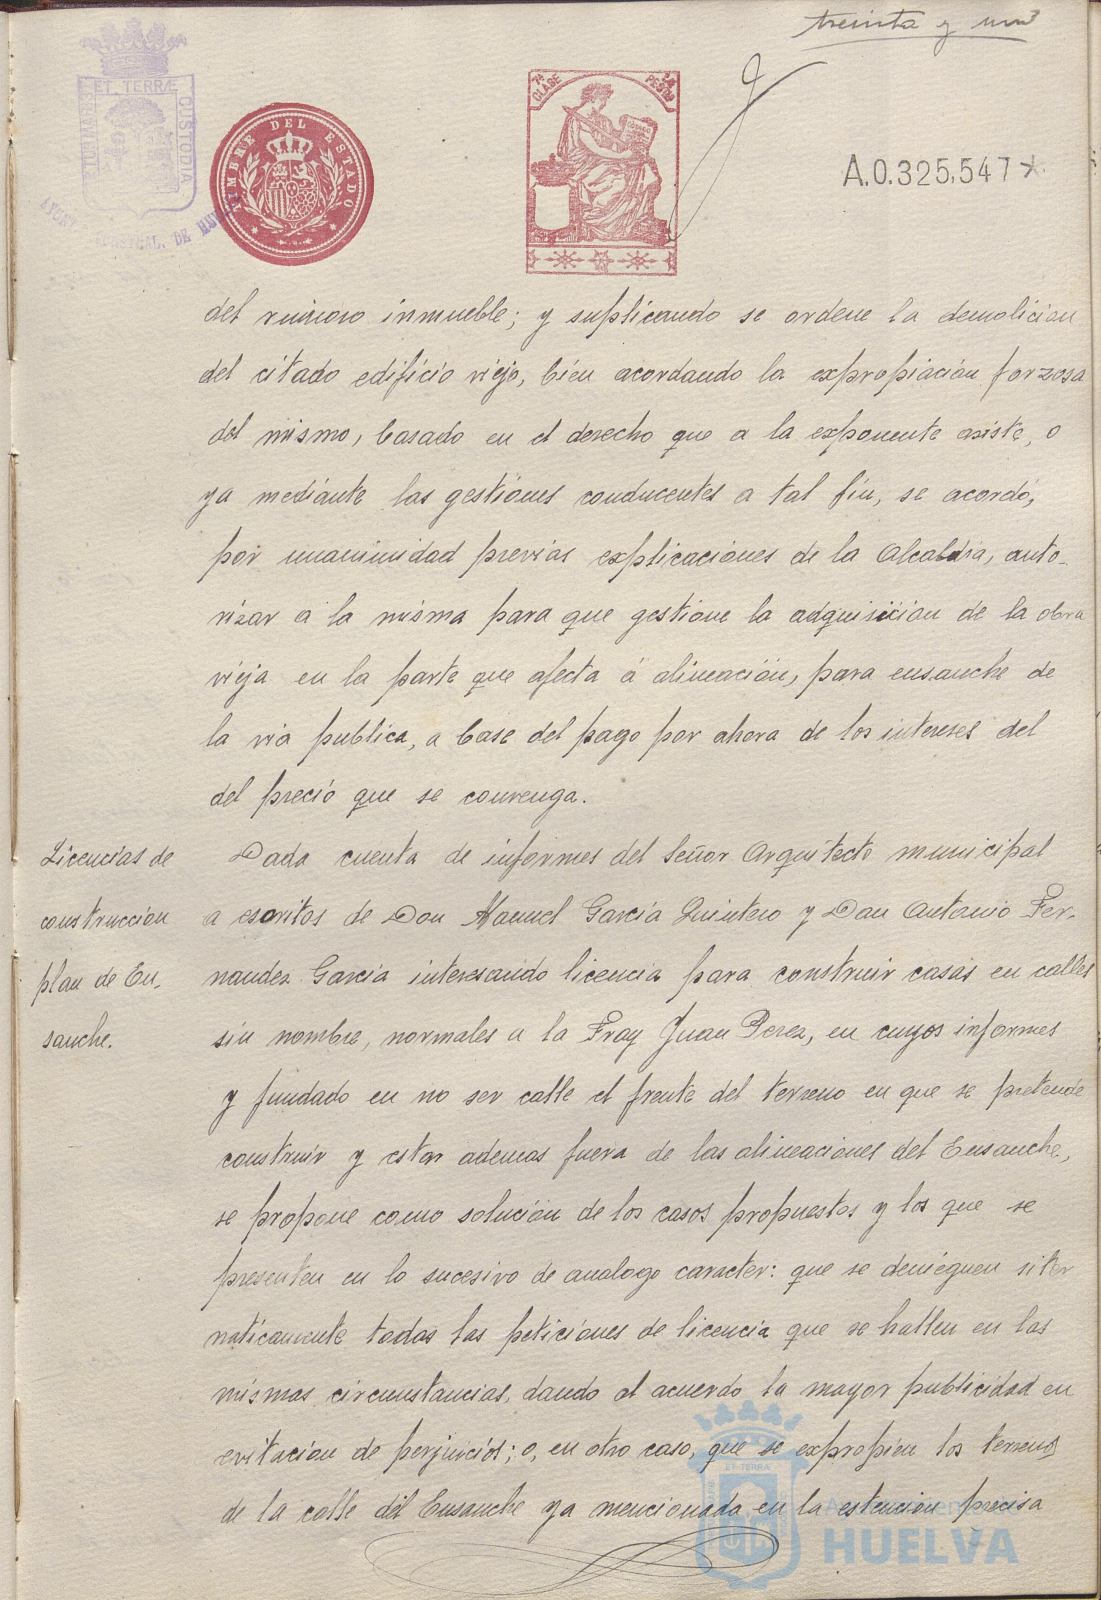 treinta y uno
ET TERRÆ
CUSTODIA
DE HUELVA
TIMBRE DEL ESTADO
7ª CLASE
PESETA
A.0.325,547*
del ruinoso inmueble; y suplicando se ordene la demolicion
del citado edificio viejo, bien acordando la expropiación forzosa
del mismo, basado en el derecho que a la exponente asiste, o
ya mediante las gestiones conducentes a tal fin, se acordó,
por unanimidad previas explicaciones de la Alcaldia, auto-
rizar a la misma para que gestione la adquisicion de la obra
vieja en la parte que afecta á alineación, para ensanche de
la via publica, a base del pago por ahora de los intereses del
del precio que se convenga.
Licencias de
construccion
plan de En-
sanche.
Dada cuenta de informes del Señor Arquitecto municipal
a escritos de Don Manuel Garcia Quintero y Don Antonio Fer-
nandez Garcia interesando licencia para construir casas en calles
sin nombre, normales a la Fray Juan Perez, en cuyos informes
y fundado en no ser calle el frente del terreno en que se pretende
construir y estar ademas fuera de las alineaciones del Ensanche,
se propone como solución de los casos propuestos y los que se
presenten en lo sucesivo de analogo caracter: que se denieguen siste
maticamente todas las peticiones de licencia que se hallen en las
mismas circunstancias, dando al acuerdo la mayor publicidad en
evitacion de perjuicios; o, en otro caso, que se expropien los terrenos
de la calle del Ensanche ya mencionada en la estencion precisa
ET TERRÆ
Ayuntamiento de
HUELVA